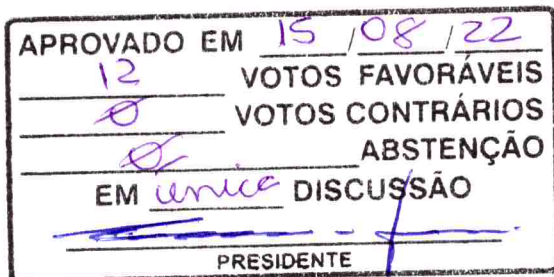 APROVADO EM 15/08/22
12 VOTOS FAVORÁVEIS
Ø VOTOS CONTRÁRIOS
Ø ABSTENÇÃO
EM única DISCUSSÃO
PRESIDENTE